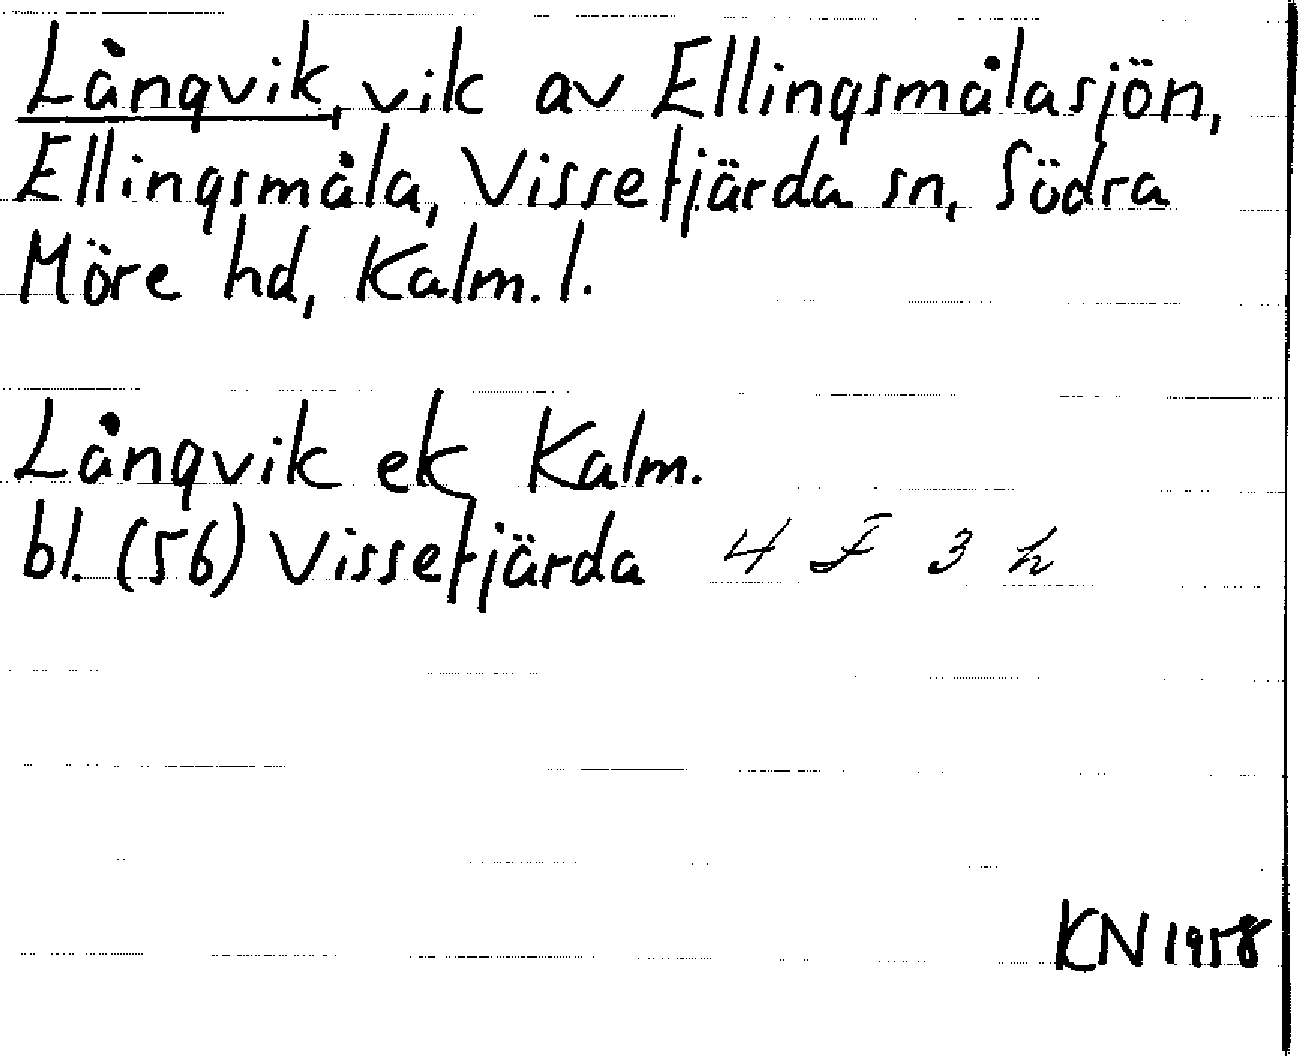 Långvik, vik av Ellingsmålasjön,
Ellingsmåla, Vissefjärda sn, Södra
Möre hd, Kalm. l.
Långvik ek Kalm.
bl. (56) Vissefjärda 4 F 3 h
KN 1958